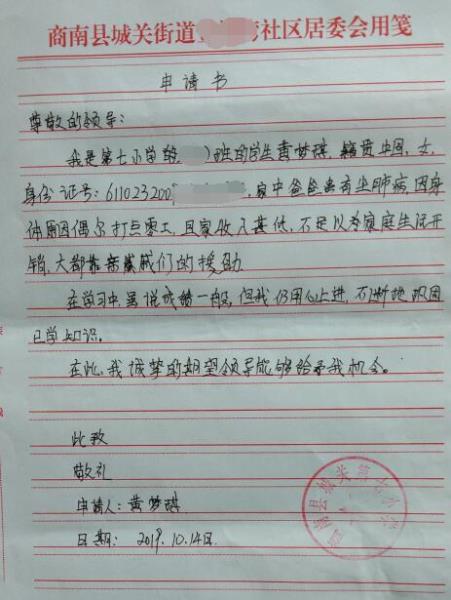 商南县城关街道 社区居委会用笺
申请书
尊敬的领导：
我是第七小学 班的学生黄梦琪，籍贯中国，女，
身份证号：611023200 ，家中爸爸患有尘肺病，因身
体原因偶尔打点零工，且家收入甚低，不足以为家庭生活开
销，大都靠亲戚们的援助。
在学习中虽说成绩一般，但我仍用心上进，不断地巩固
已学知识。
在此，我诚挚的期望领导能够给予我机会。
此致
敬礼
申请人：黄梦琪
日期：2019.10.14日
商南县城关第七小学